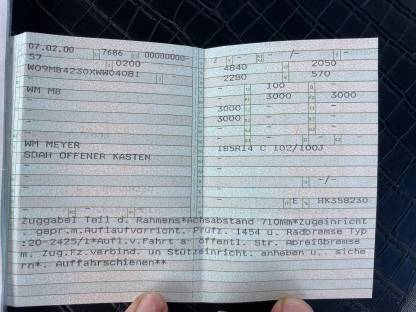 07.02.00 7686 00000000-
57 0200
W09MB4230XWW04081
WM MB
-
-
-
WM MEYER
SDAH OFFENER KASTEN
-
-
2 - - /- - -
4840 2050
2280 570
- 100 -
- 3000 3000
3000 - -
3000 - -
- -
- - -
185R14 C 102/100J
-
- -/-
-
- E HK358230
Zuggabel Teil d. Rahmens*Achsabstand 710mm*Zugeinricht
. gepr.m.Auflaufvorricht. Prüfz. 1454 u. Radbremse Typ
:20-2425/1*Aufl.v.Fahrt a. öffentl. Str. Abreißbremse
m. Zug.Fz.verbind. un Stützeinricht. anheben u. siche
rn*. Auffahrschienen**